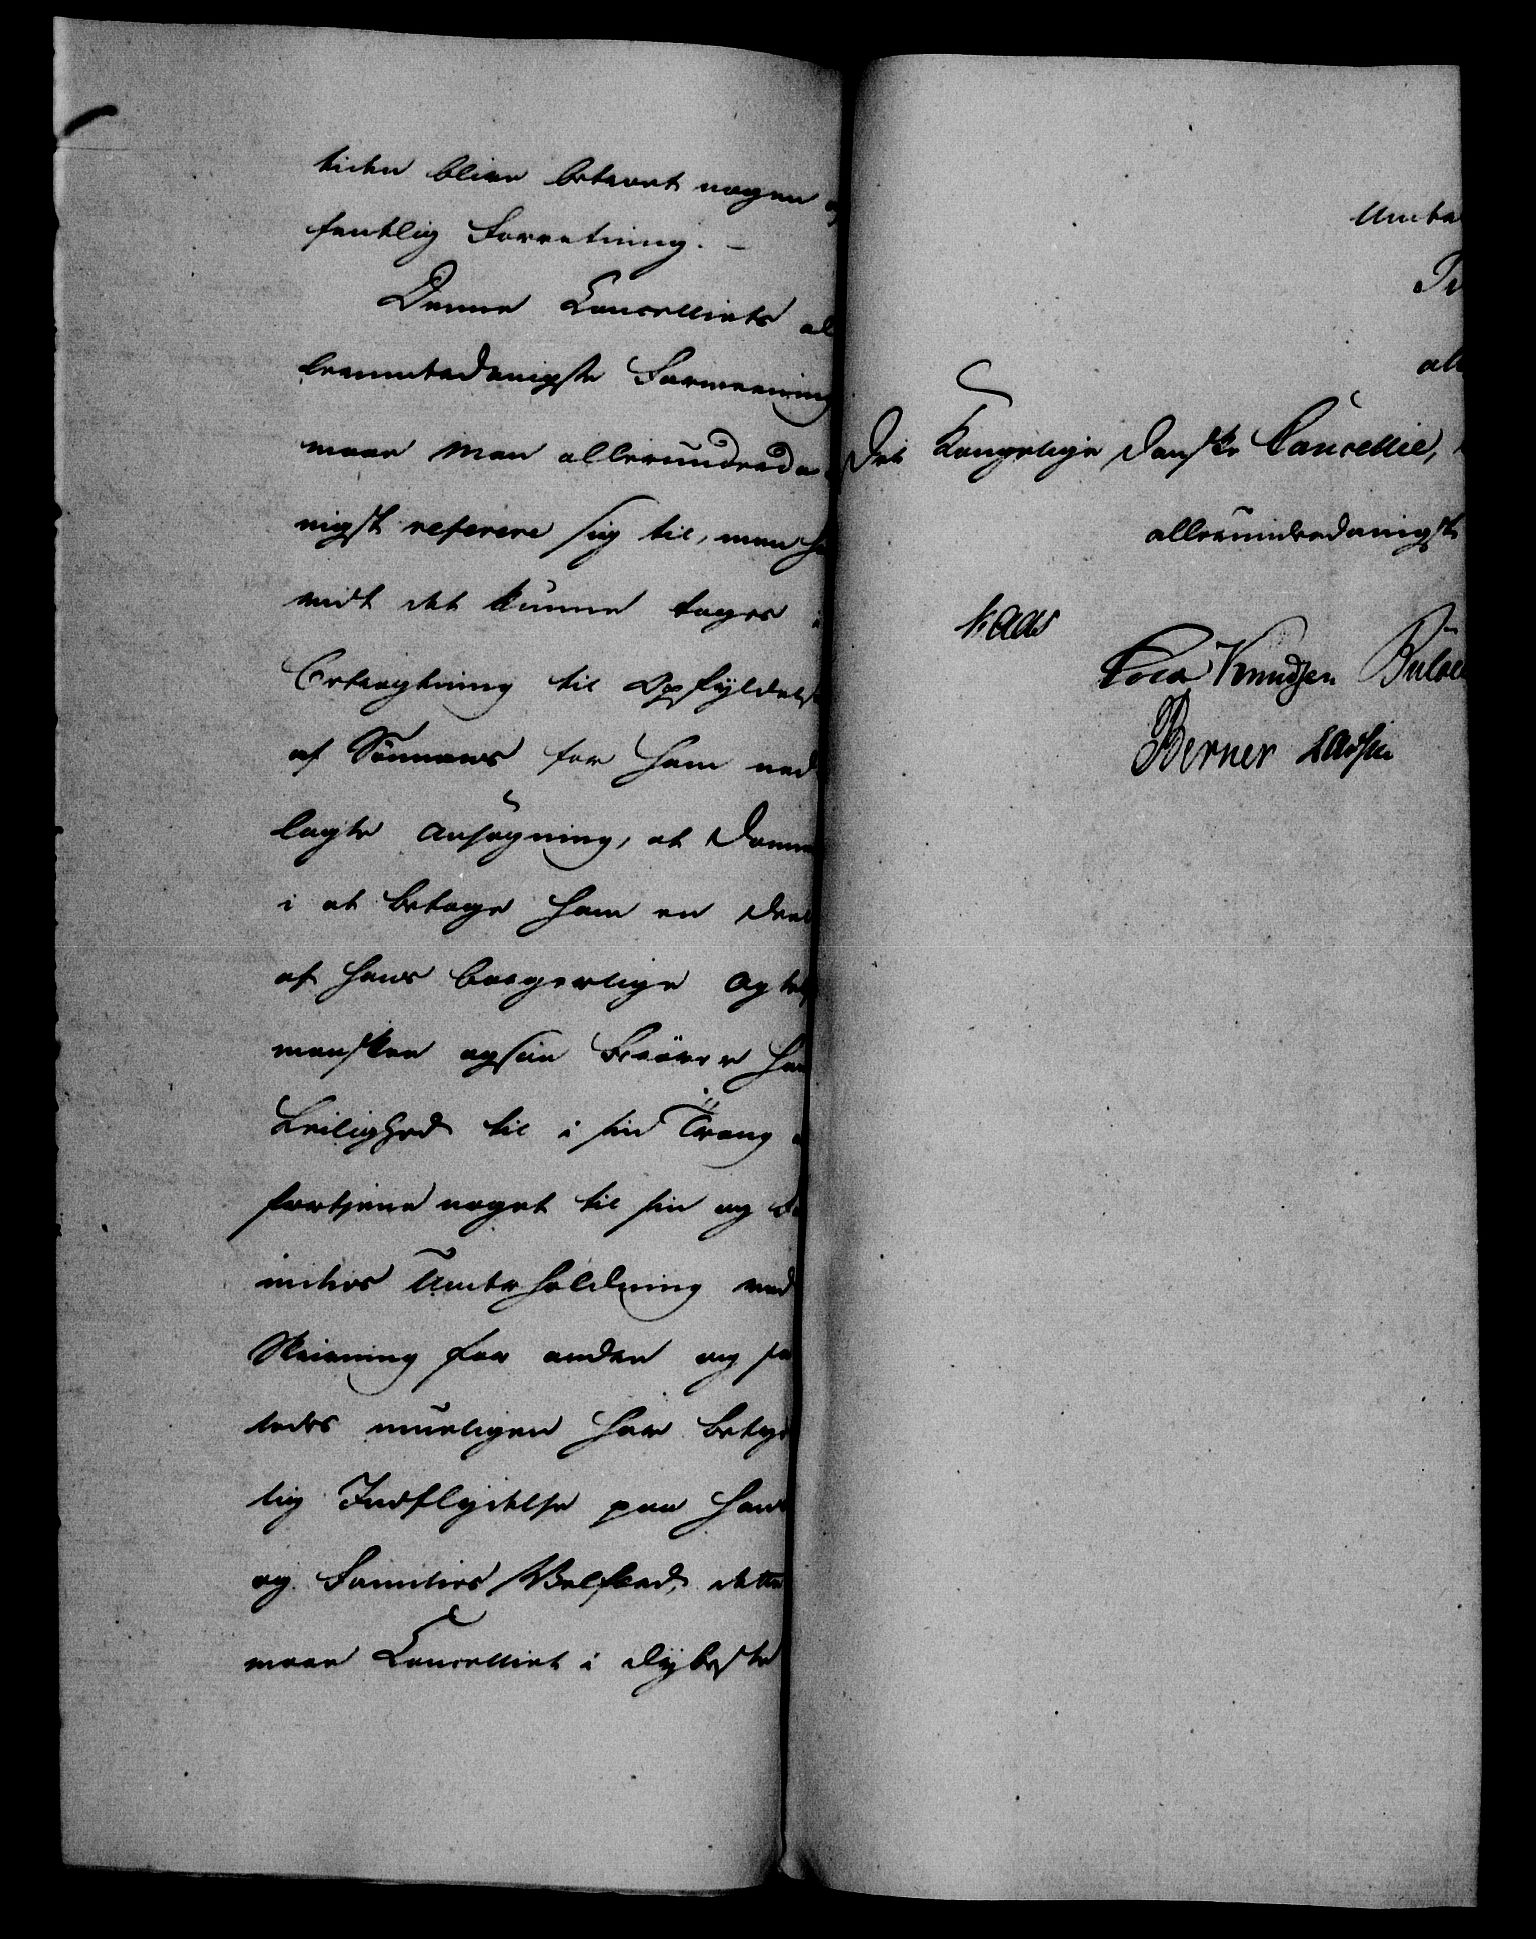 tiden bliver betroet nogen o
fentlig Forretning. –
Denne Cancelliets al
lerunderdanigste Formeening
maae man allerunderda
nigst referere sig til, men ho
vidt det kunne tages i
Betragtning til Opfyldelse
af Sønnens for ham ned
lagte Ansøgning, at Dommen
i at betage ham en Deel
af hans borgerlige Agtelse
maaskee ogsaa berøver ham
Leilighed til i sin Trang
fortjene noget til sin og Fa
milies Underholdning ved
Skrivning for andre og saa
ledes mueligen har betyde
lig Indflydelse paa hans
og Families Velfærd, dette
maae Cancelliet i dybeste
Unde
al
Det Kongelige Danske Cancellie,
allerunderdanigst
Kaas
Cold Knudsen Bülow
Berner Lassen